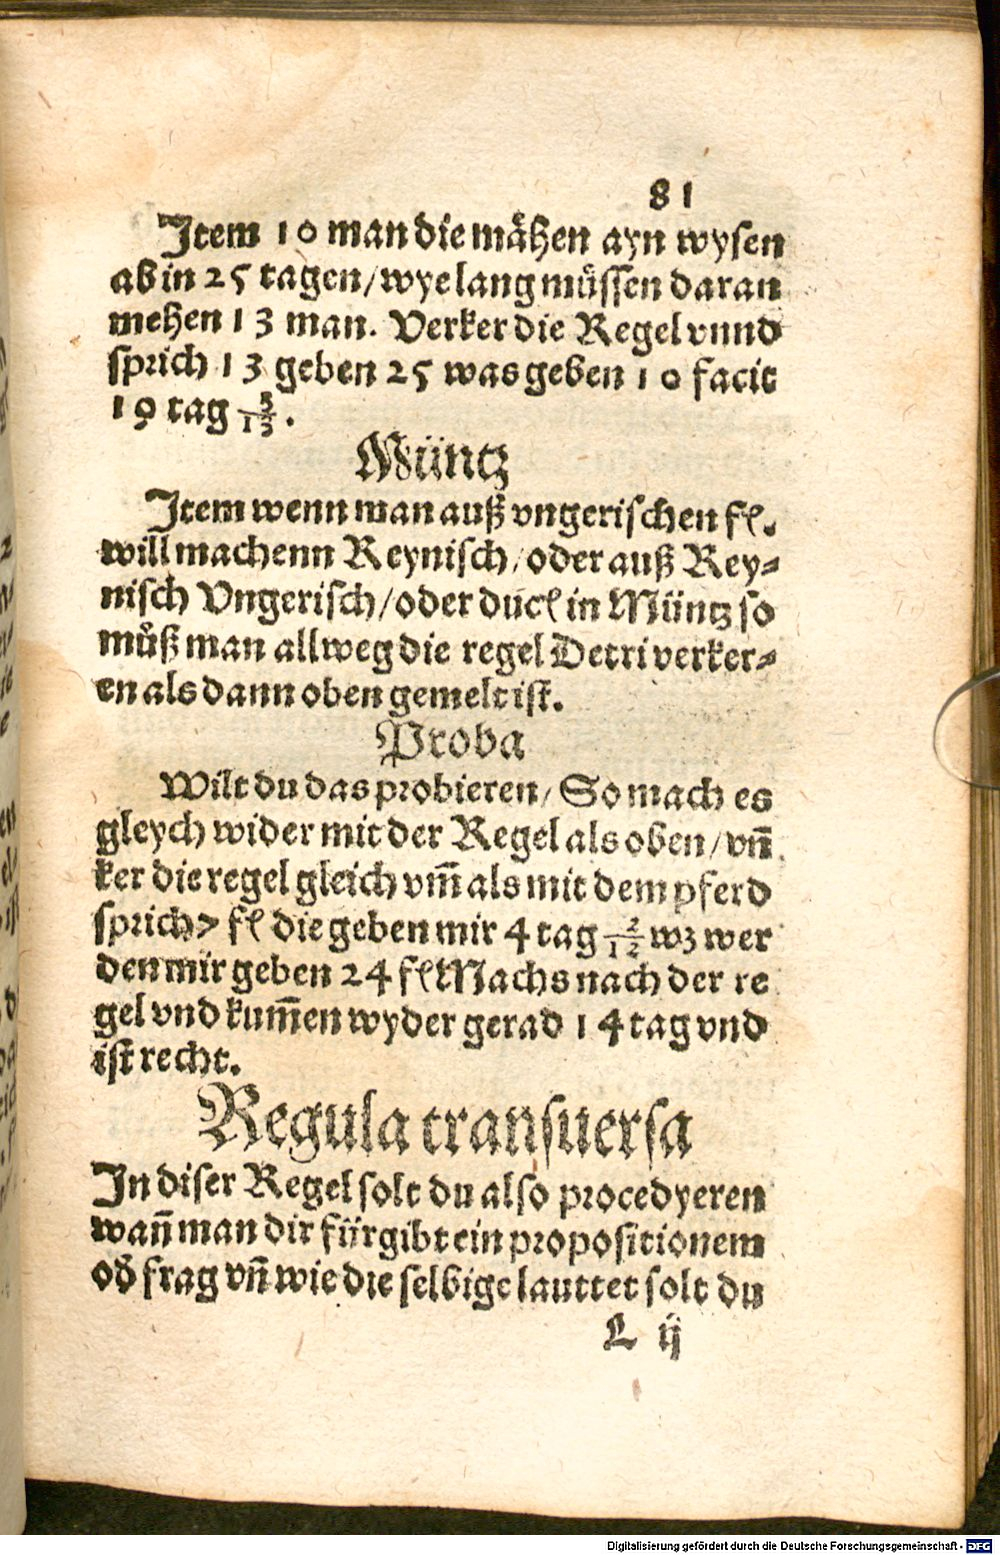 81
Item 10 man die mähen ayn wysen
ab in 25 tagen/wye lang müssen daran
mehen 13 man. Verker die Regel vnnd
sprich 13 geben 25 was geben 10 facit
19 tag 3/13.
Müntz
Item wenn man auß vngerischen fl.
will machenn Reynisch/oder auß Rey⸗
nisch Vngerisch/oder ducl in Müntz so
můß man allweg die regel Detri verker⸗
en als dann oben gemelt ist.
Proba
Wilt du das probieren/So mach es
gleych wider mit der Regel als oben/vn̄
ker die regel gleich vm̄ als mit dem pferd
sprich 7 fl die geben mir 4 tag 2/12 wz wer
den mir geben 24 fl Machs nach der re
gel vnd kum̄en wyder gerad 14 tag vnd
ist recht.
Regula transuersa
In diser Regel solt du also procedyeren
wan̄ man dir fürgibt ein propositionem
od̕ frag vn̄ wie die selbige lauttet solt du
L ij
Digitalisierung gefördert durch die Deutsche Forschungsgemeinschaft - DFG